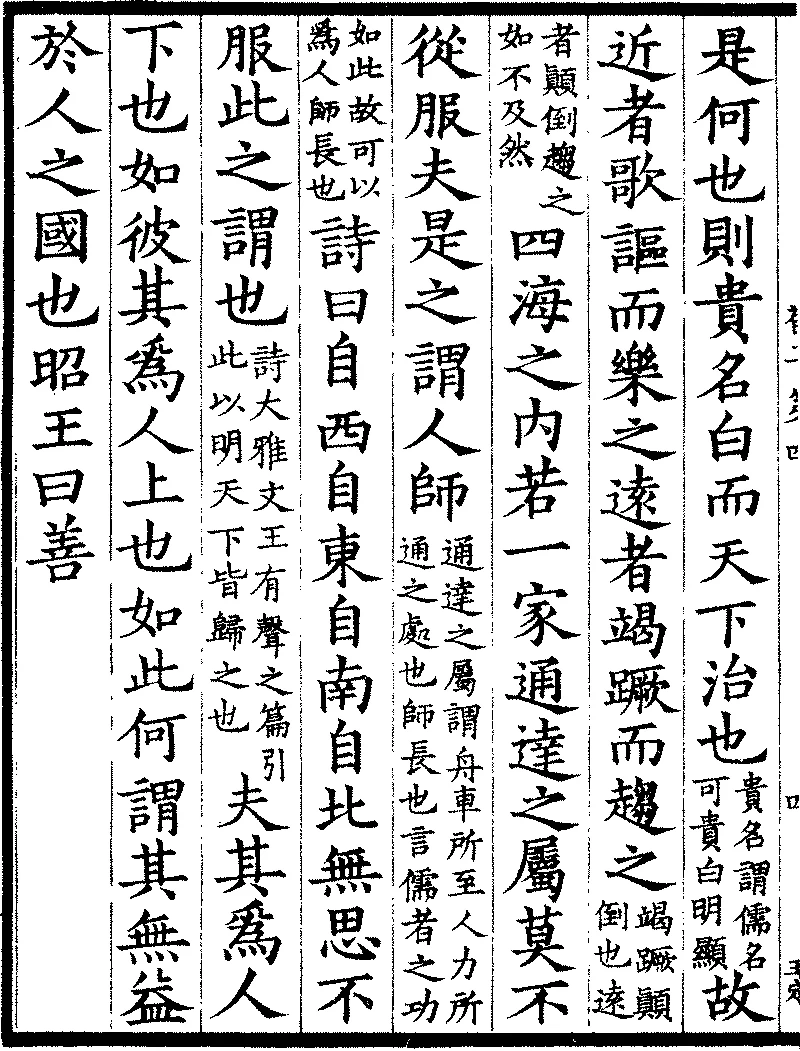 是何也則貴名白而天下治也貴名謂儒名可貴白明顯故
近者歌謳而樂之遠者竭蹶而趨之竭蹶顚倒也遠
者顚倒趨之如不及然四海之内若一家通達之屬莫不
從服夫是之謂人師通達之屬謂舟車所至人力所通之處也師長也言儒者之功
如此故可以爲人師長也詩曰自西自東自南自北無思不
服此之謂也詩大雅文王有聲之篇引此以明天下皆歸之也夫其爲人
下也如彼其爲人上也如此何謂其無益
於人之國也昭王曰善